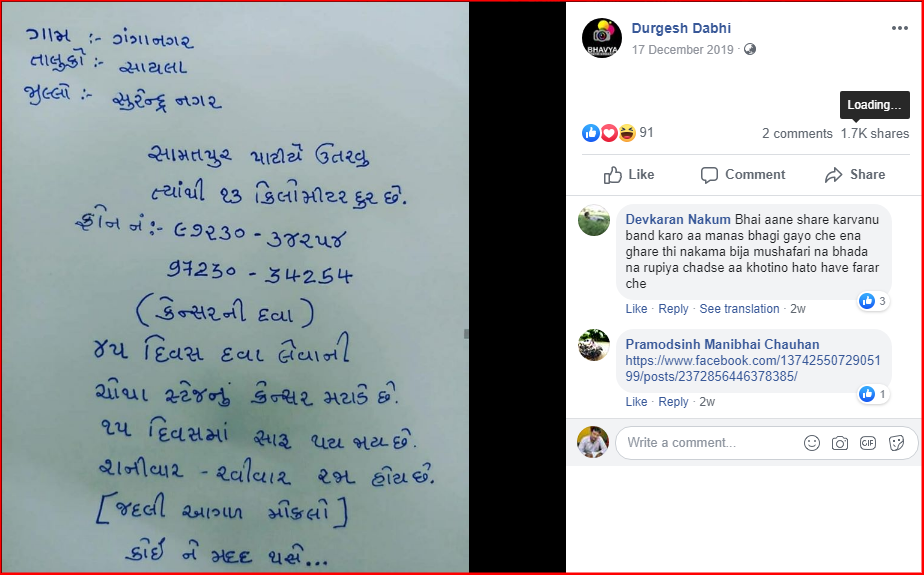 ગામ :- ગંગાનગર
તાલુકો :- સાયલા
જીલ્લો :- સુરેન્દ્રનગર
સામતપુર પાટીયે ઉતરવુ
ત્યાંથી ૧૩ કિલોમીટર દુર છે.
ફોન નં :- ૯૭૨૩૦ - ૩૪૨૫૪
97230 - 34254
(કેન્સરની દવા)
૪૫ દિવસ દવા લેવાની
ચોથા સ્ટેજનું કેન્સર મટાડે છે.
૧૫ દિવસમાં સારૂ થય જાય છે.
શનીવાર - રવીવાર રજા હોય છે.
[જલ્દી આગળ મોકલો]
કોઈ ને મદદ થાસે...
BHAVYA
Durgesh Dabhi
17 December 2019 ·
Loading...
91
2 comments 1.7K shares
Like Comment Share
Devkaran Nakum Bhai aane share karvanu
band karo aa manas bhagi gayo che ena
ghare thi nakama bija mushafari na bhada
na rupiya chadse aa khotino hato have farar
che
3
Like · Reply · See translation · 2w
Pramodsinh Manibhai Chauhan
https://www.facebook.com/13742550729051
99/posts/2372856446378385/
1
Like · Reply · 2w
Write a comment...
GIF